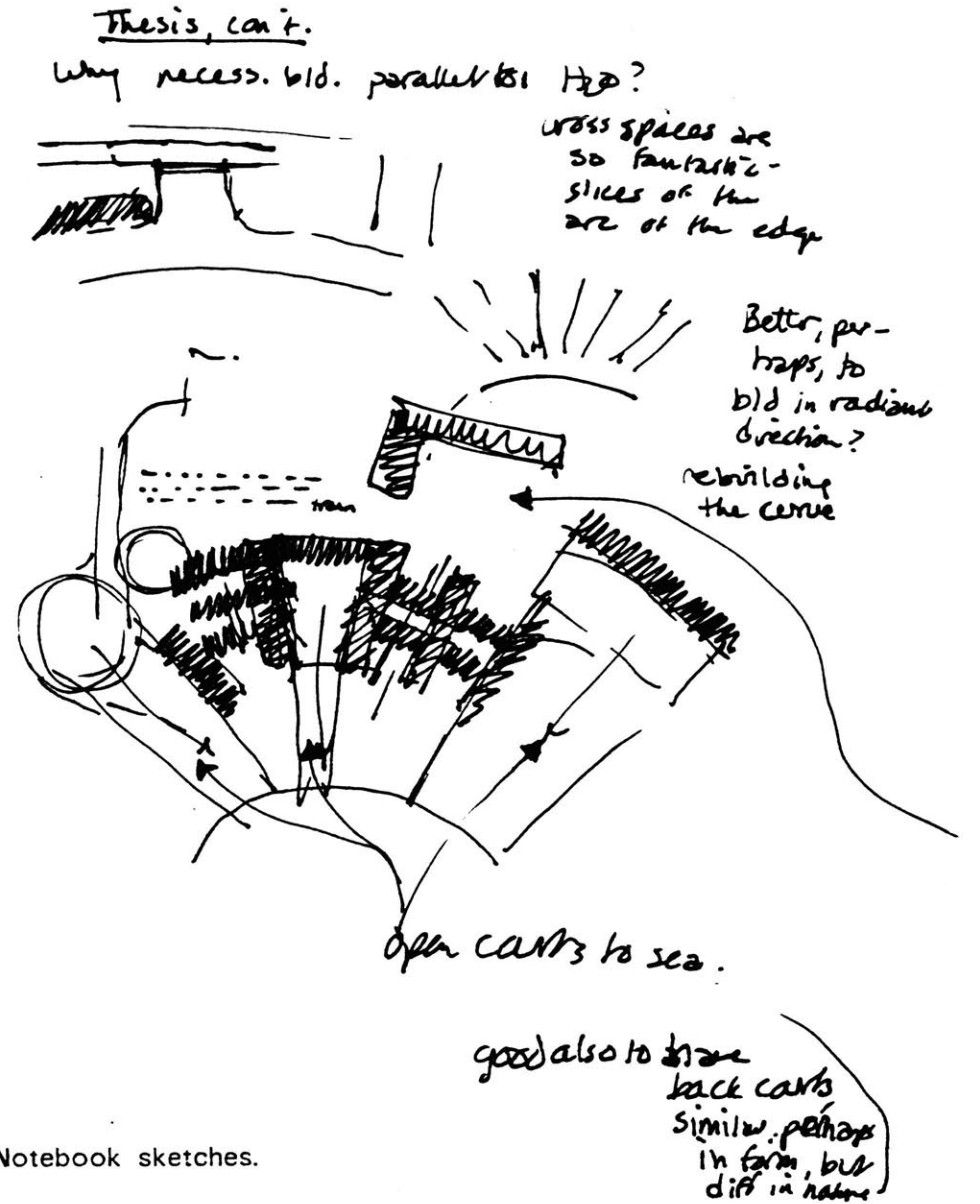 Thesis, con't.
Why necess. bld. parallel to H2O?
cross spaces are
so fantastic-
slices of the
arc of the edge
Bettr, per-
haps, to
bld in radiant
direction?
rebuilding
the curve
train
open courts to sea.
good also to have
back courts
similar perhaps
in form, but
diff in nature
Notebook sketches.